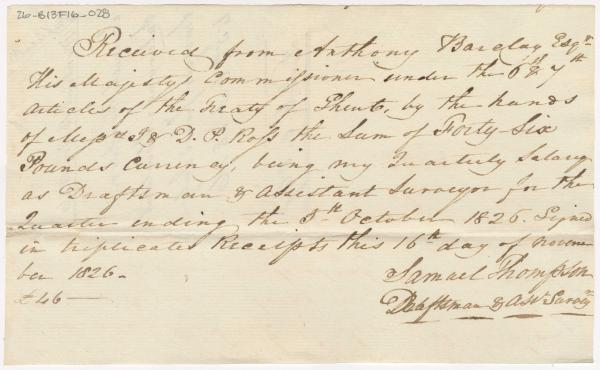 26-B13F16-028
Received from Anthony Barclay Esqr
His Majestys Commissioner under the 6th & 7th
Articles of the Treaty of Ghent, by the hands
of Messrs J & D. P. Ross the Sum of Forty-Six
Pounds Currency, being my Quarterly Salary
as Draftsman & Assistant Surveyor for the
Quarter ending the 5th October 1826. Signed
in triplicates Receipts this 16th day of Novem
ber 1826.
£46—
Samuel Thompson
Draftsman & Asst Survey